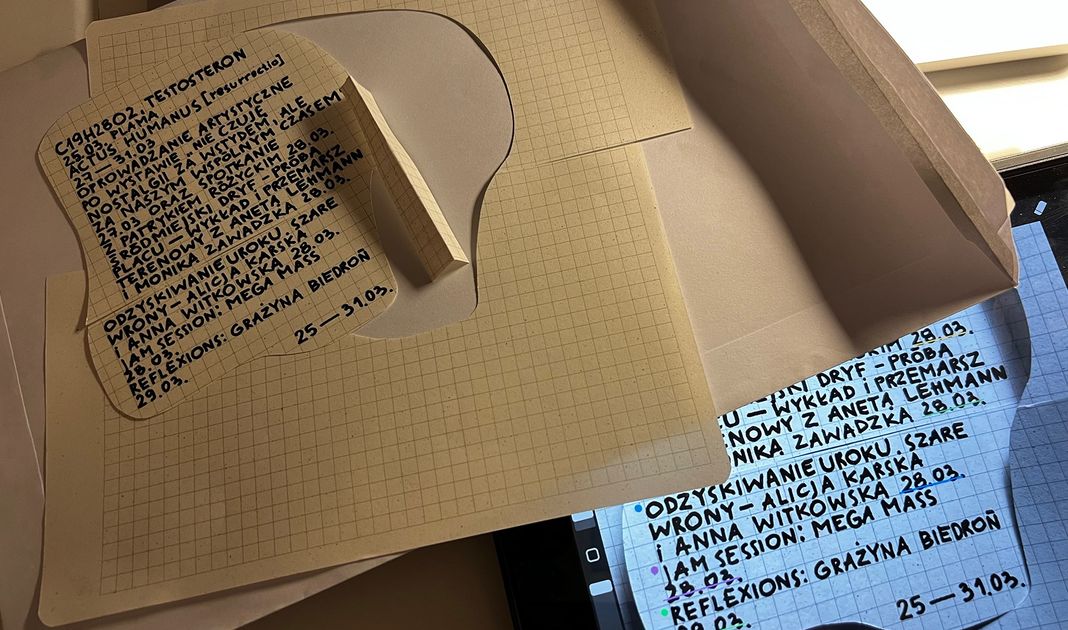 C19H28O2, TESTOSTERON
25.03. PLAMA,
ACTUS HUMANUS [resurrectio]
27 — 31.03.
OPROWADZANIE ARTYSTYCZNE
PO WYSTAWIE „NIE CZUJĘ
NOSTALGII ZA WSTYDEM, ALE
ZA NASZYM WSPÓLNYM CZASEM
ORAZ SPOTKANIE
Z PATRYKIEM RÓŻYCKIM 28.03.
ŚRÓDMIEJSKI DRYF - PRÓBA
PLACU — WYKŁAD I PRZEMARSZ
TERENOWY Z ANETĄ LEHMANN
I MONIKĄ ZAWADZKĄ 28.03.
ODZYSKIWANIE UROKU. SZARE
WRONY — ALICJA KARSKA
I ANNA WITKOWSKA 28.03.
JAM SESSION: MEGA MASS
28.03.
REFLEXIONS: GRAŻYNA BIEDROŃ
29.03.
25 — 31.03.
KIM 28.03.
JSKI DRYF - PRÓBA
CU — WYKŁAD I PRZEMARSZ
NOWY Z ANETĄ LEHMANN
NIKĄ ZAWADZKĄ 28.03.
ODZYSKIWANIE UROKU. SZARE
WRONY — ALICJA KARSKA
I ANNA WITKOWSKA 28.03.
JAM SESSION: MEGA MASS
28.03.
REFLEXIONS: GRAŻYNA BIEDROŃ
29.03.
25 — 31.03.